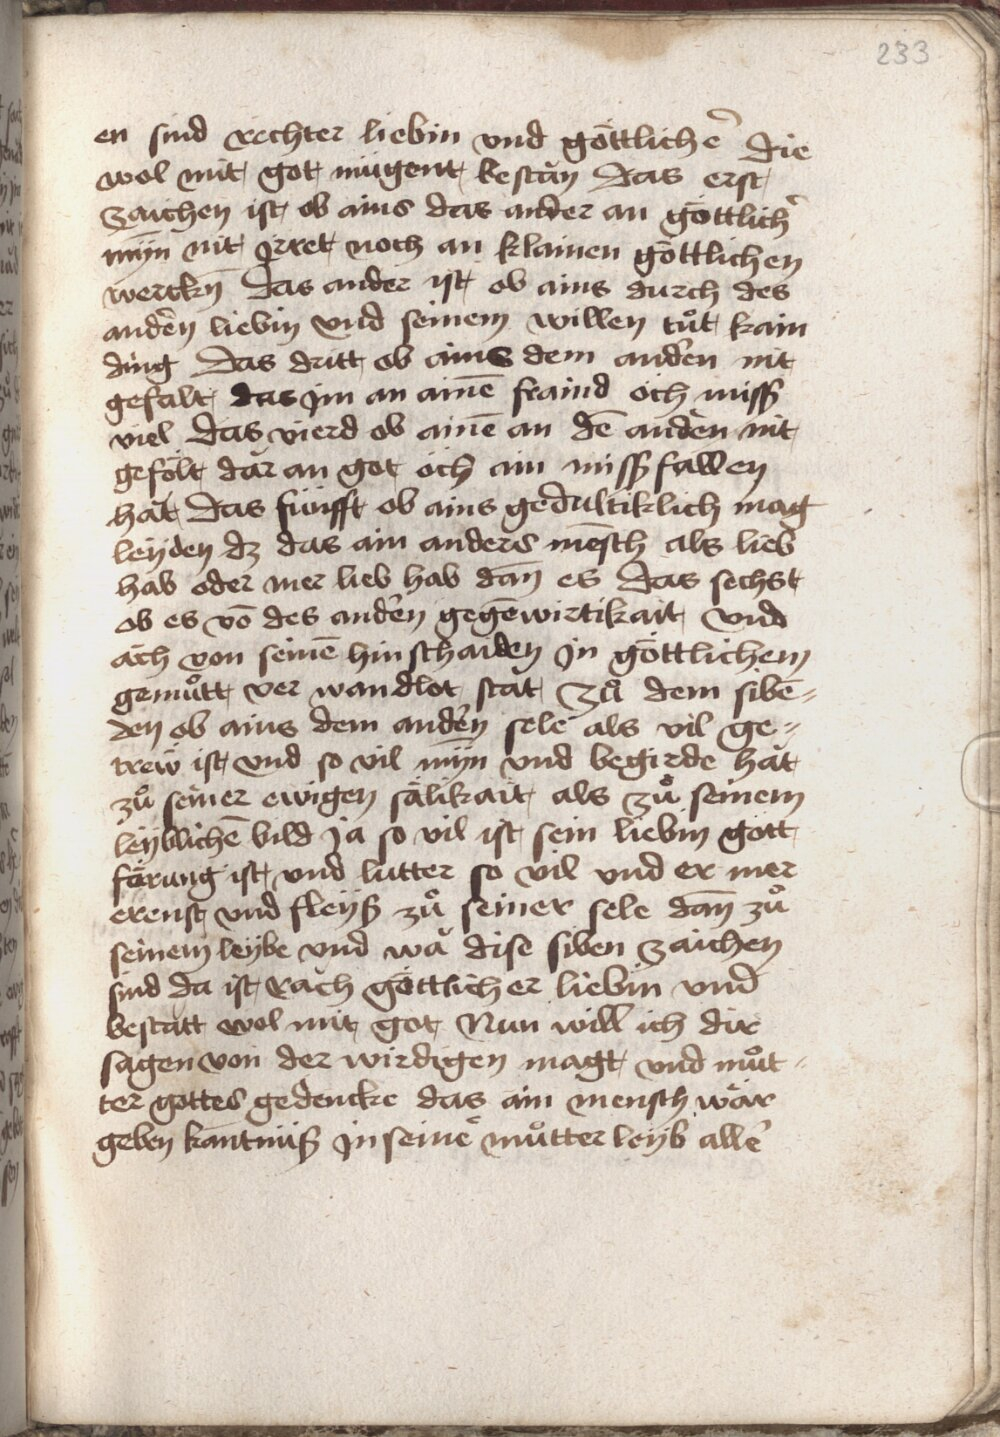 233
en sind rechter liebin vnd göttlichẽ die
wol mit got mugent bestän Das erst
zaichen ist ob ains das ander an göttlichẽ
mÿn nit Jrret noch an klainen göttlichen
wercken̄ Das ander ist ob ains durch des
anderñ liebin vnd seinem willen tůt kain
ding Das dritt ob ains dem andern nit
gefalt das Jm an ainē fraind öch miss
viel Das vierd ob ainē an dē andern nit
gefölt där an got öch ain missfallen
hät Das fünfft ob ains gedultiklich mag
leÿden dz das ain anders mēsch als lieb
hab oder mer lieb hab dan̄ es Das sechst
ob es vō des andern gegēwirtikait vnd
äch von seinē hin schaiden Jn göttlichem
gemůtt ver wandlot stät Zů dem sibē-
den ob ains dem andern sele als vil ge-
trew ist vnd so vil mÿn vnd begirde hät
zů seiner ewigen sälikait als zů seinem
leÿblichē bild Ja so vil ist sein liebin gott
färung ist vnd lutter so vil vnd er mer
erenst vnd fleÿß zů seiner sele dan̄ zů
seinem leÿbe vnd wä dise siben zaichen
sind da ist räch göttlicher liebin vnd
bestätt wol mit got Nun will ich dir
sagen von der wirdigen magt vnd můt-
ter gottes gedencke das ain mensch wär
geben kantniß Jn seinē můtter leÿb allē